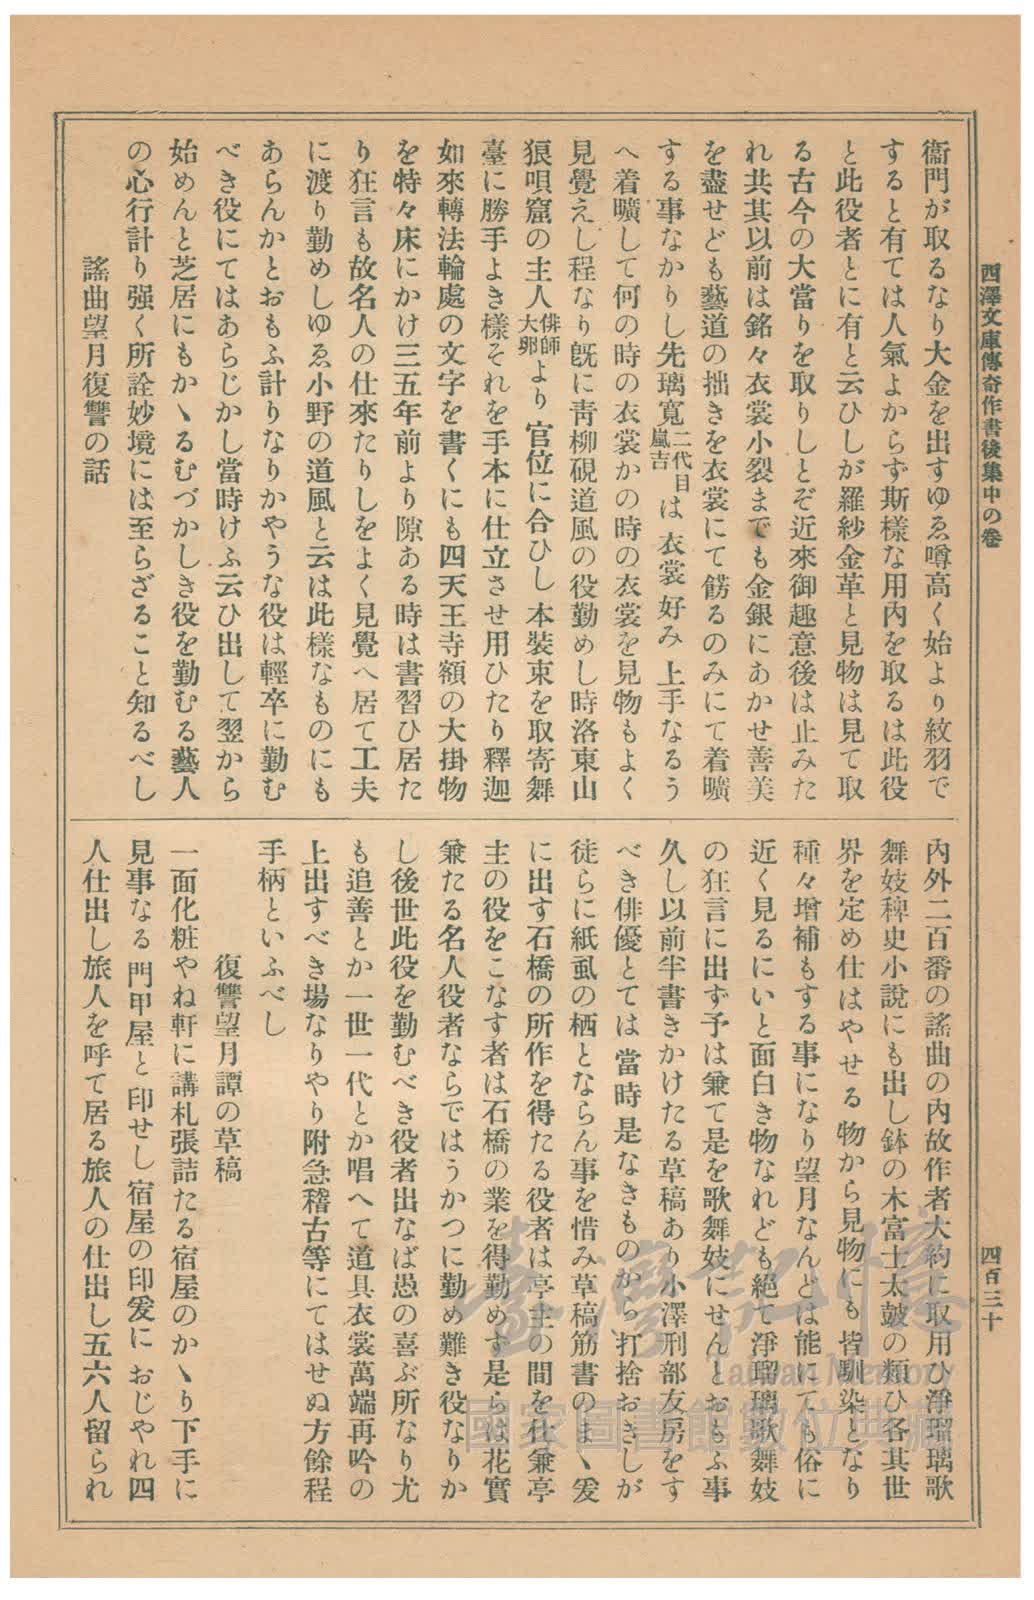 西澤文庫傳奇作書後集中の卷
四百三十
衞門が取るなり大金を出すゆゑ噂高く始より紋羽で
すると有ては人氣よからず斯樣な用內を取るは此役
と此役者とに有と云ひしが羅紗金革と見物は見て取
る古今の大當りを取りしとぞ近來御趣意後は止みた
れ共其以前は銘々衣裳小裂までも金銀にあかせ善美
を盡せども藝道の拙きを衣裳にて餝るのみにて着曠
する事なかりし先璃寬二代目嵐吉は衣裳好み上手なるう
へ着曠して何の時の衣裳かの時の衣裳を見物もよく
見覺えし程なり旣に靑柳硯道風の役勤めし時洛東山
狼唄窟の主人俳師大卵より官位に合ひし本裝束を取寄舞
臺に勝手よき樣それを手本に仕立させ用ひたり釋迦
如來轉法輪處の文字を書くにも四天王寺額の大掛物
を特々床にかけ三五年前より隙ある時は書習ひ居た
り狂言も故名人の仕來たりしをよく見覺へ居て工夫
に渡り勤めしゆゑ小野の道風と云は此樣なものにも
あらんかとおもふ計りなりかやうな役は輕卒に勤む
べき役にてはあらじかし當時けふ云ひ出して翌から
始めんと芝居にもかゝるむづかしき役を勤むる藝人
の心行計り强く所詮妙境には至らざること知るべし
謠曲望月復讐の話
內外二百番の謠曲の內故作者大約に取用ひ淨瑠璃歌
舞妓稗史小說にも出し鉢の木富士太皷の類ひ各其世
界を定め仕はやせる物から見物にも皆馴染となり
種々增補もする事になり望月なんどは能にても俗に
近く見るにいと面白き物なれども絕て淨瑠璃歌舞妓
の狂言に出ず予は兼て是を歌舞妓にせんとおもふ事
久し以前半書きかけたる草稿あり小澤刑部友房をす
べき俳優とては當時是なきものから打捨おきしが
徒らに紙虱の栖とならん事を惜み草稿筋書のまゝ爰
に出す石橋の所作を得たる役者は亭主の間を仕兼亭
主の役をこなす者は石橋の業を得勤めず是らは花實
兼たる名人役者ならではうかつに勤め難き役なりか
し後世此役を勤むべき役者出なば愚の喜ぶ所なり尤
も追善とか一世一代とか唱へて道具衣裳萬端再吟の
上出すべき場なりやり附急稽古等にてはせぬ方餘程
手柄といふべし
復讐望月譚の草稿
一面化粧やね軒に講札張詰たる宿屋のかゝり下手に
見事なる門甲屋と印せし宿屋の印爰におじやれ四
人仕出し旅人を呼て居る旅人の仕出し五六人留られ
臺灣記憶
Taiwan Memory
國家圖書館數位典藏